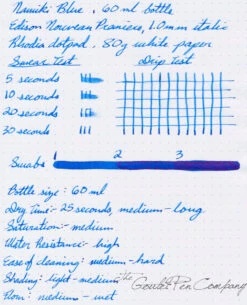 Namiki Blue, 60 ml bottle
Edison Nouveau Premiere, 1.0mm italic
Rhodia dotpad, 80g white paper
Smear Test Drip Test
5 seconds
10 seconds
20 seconds
30 seconds
1 2 3
Swabs
Bottle size: 60 ml
Dry Time: 25 seconds, medium-long
Saturation: medium
Water Resistance: high
Ease of cleaning: medium-hard
Shading: light-medium
Flow: medium-wet
the Goulet Pen Company